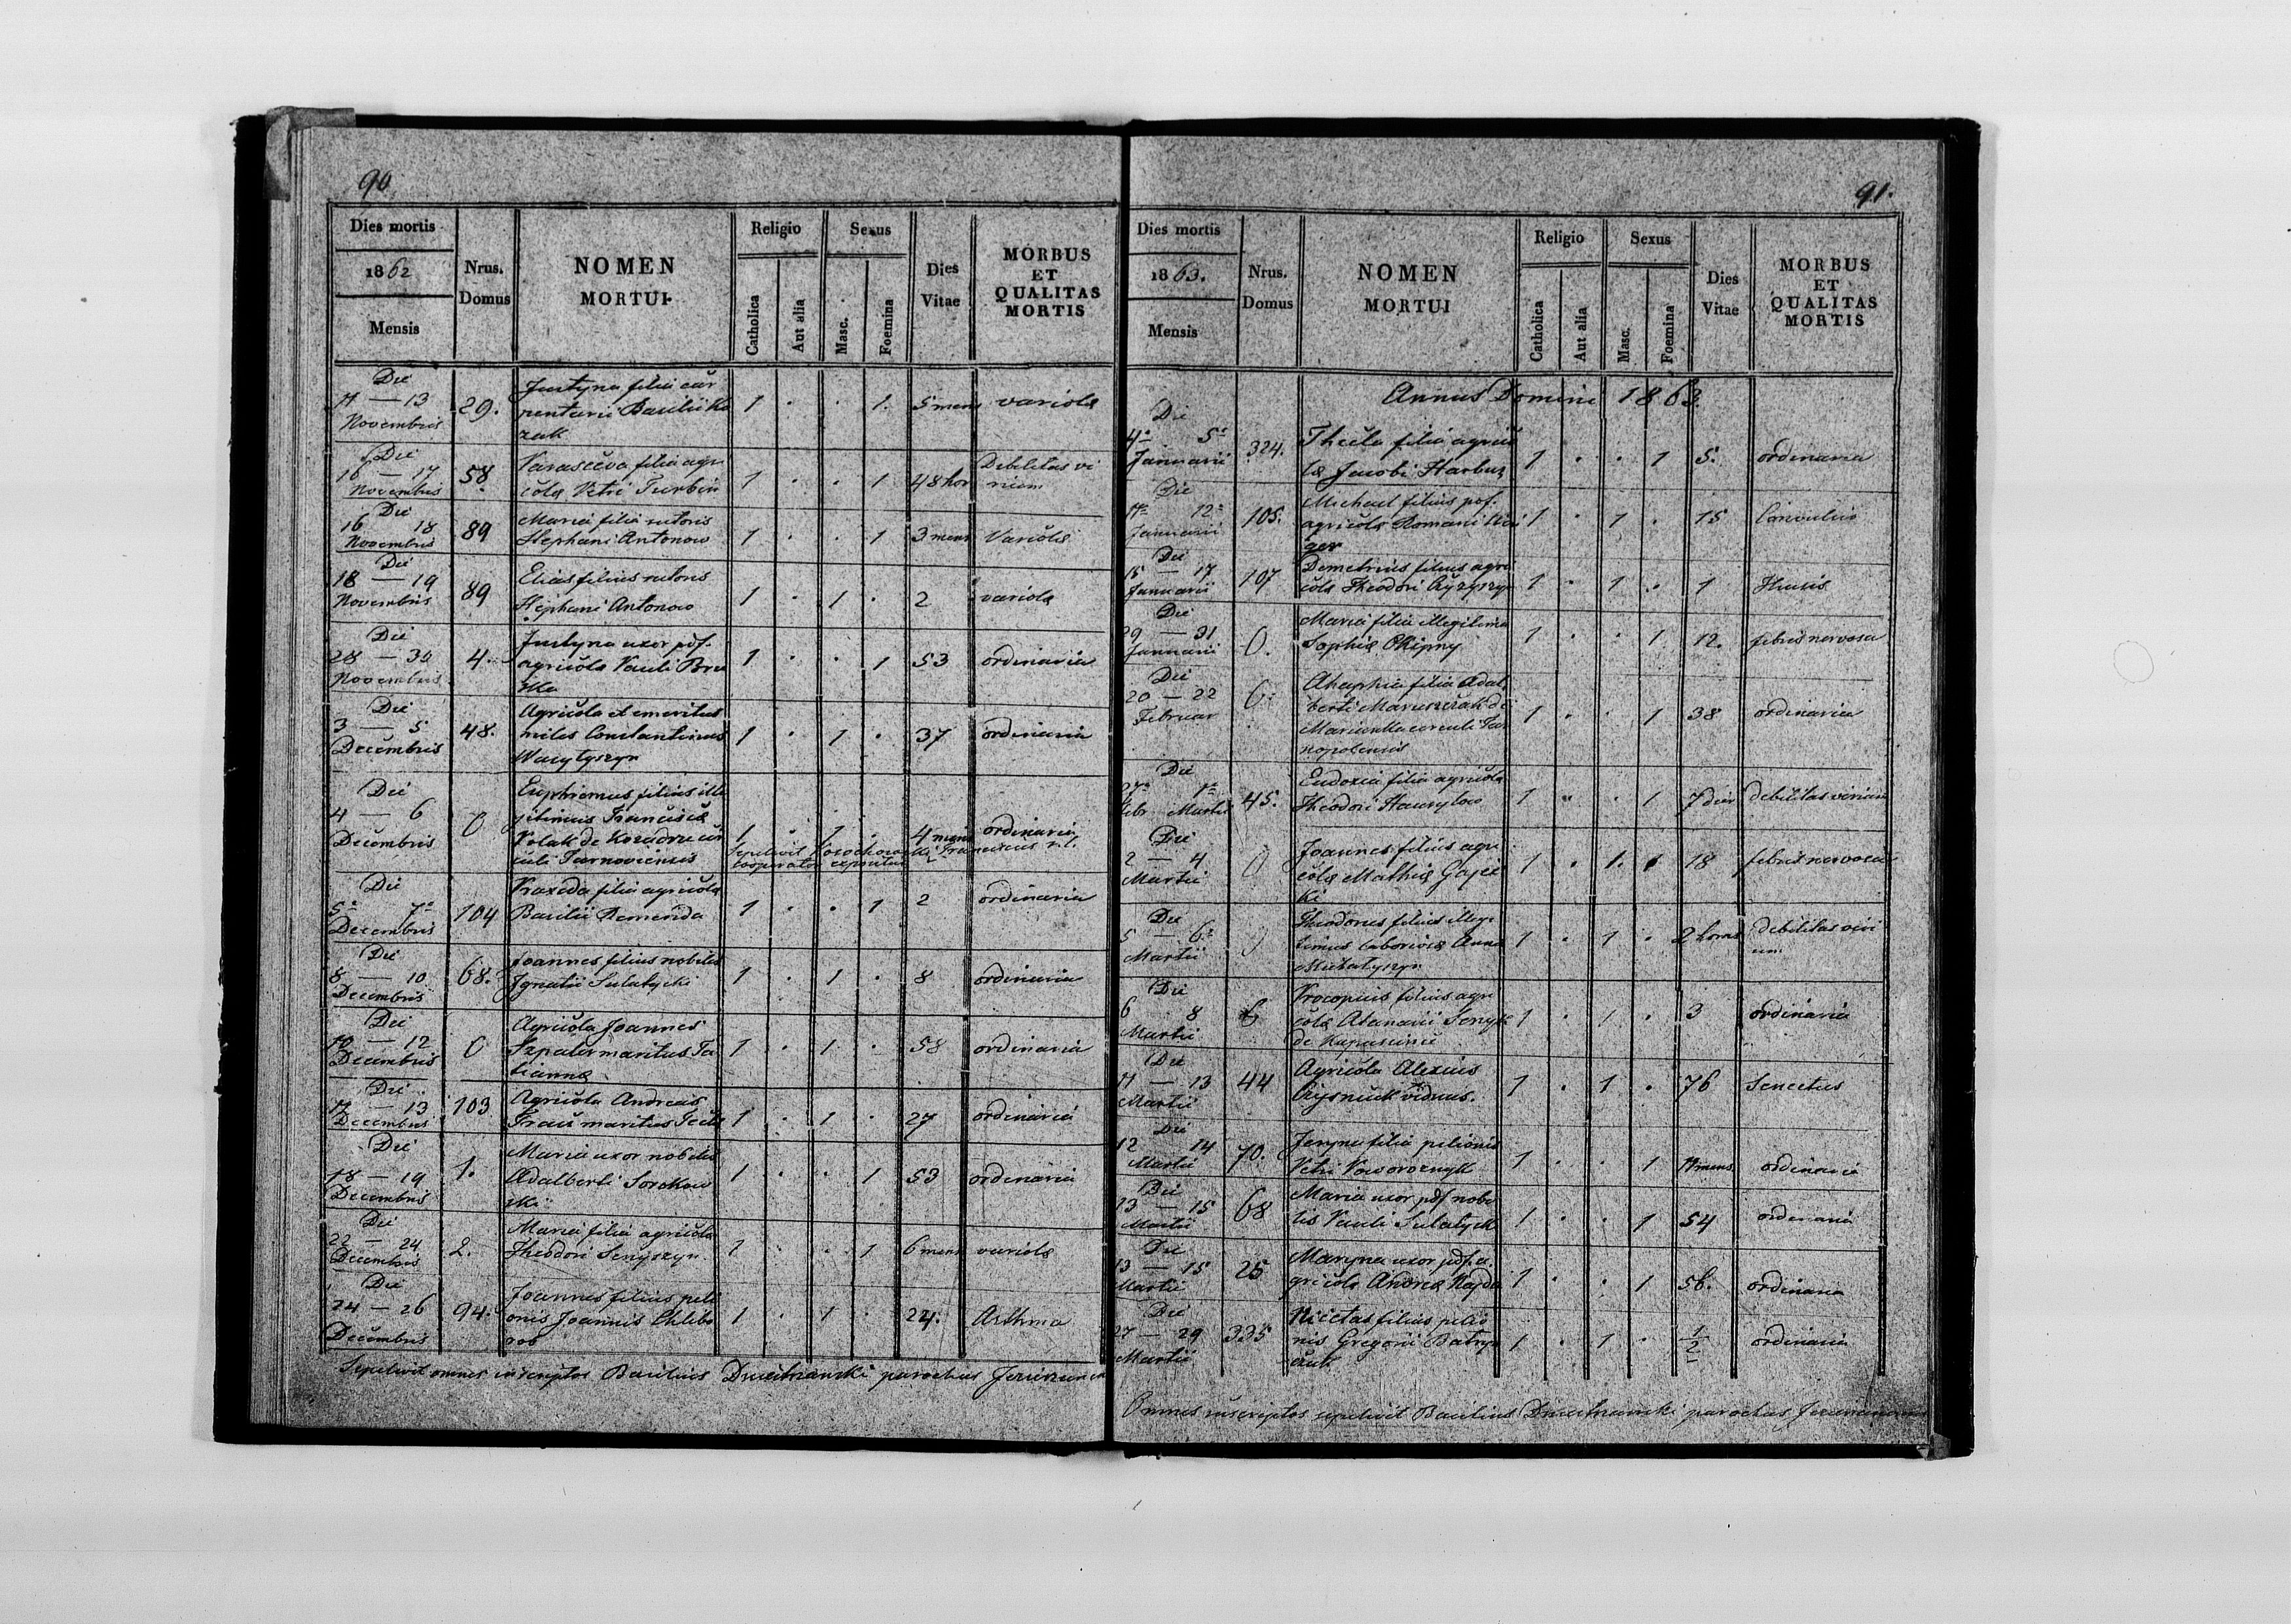 90
Dies mortis
1862
Mensis
Nrus. Domus
NOMEN
MORTUI
Religio
Catholica
Aut alia
Sexus
Masc.
Foemina
Dies
Vitae
MORBUS
ET
QUALITAS
MORTIS
Die
11 — 13 29. 1 . . 1. 5 mens variola
Novembris
Justyna filia car
pentarii Basilii
Die
16 — 17 58. 1 . . 1 48 hor Debilitas vi
Novembris rium
Parasceva filia agri
colæ Petri Turbin
Die
16 18 89 1 . . 1 3 mens Variola
Novembris
Maria filia sutoris
Stephani Antonow
Die
18 — 19 89 1 . 1 . 2 variola
Novembris
Elias filius sutoris
Stephani Antonow
Die
28 — 30 4. 1 . . 1 53 ordinaria
Novembris
Justyna uxor pdf.
agricolæ Pauli
Die
3 — 5 48. 1 . 1 . 37 ordinaria
Decembris
Agricola et emeritus
miles Constantinus
Wasylyszyn
Die
4 — 6 0 1 1 4 mens ordinaria
Decembris
Euphiemus filius ille
gitimus Franciscæ
Polak de
culi Tarnoviensis
Sepelivit Franciscus r.l.
cooperator expositus
Die
5 7 104 1 . . 1 2 ordinaria
Decembris
Praxeda filia agricolæ
Basilii Demenda
Die
8 — 10 68. 1 . 1 . 8 ordinaria
Decembris
Joannes filius nobilis
Ignatii Sulatycki
Die
10 — 12 0 1 . 1 . 58 ordinaria
Decembris
Agricola Joannes
Szpaler maritus Ta
tiannæ
Die
12 — 13 103 1 . 1 . 27 ordinaria
Decembris
Agricola Andreas
maritus Teclæ
Die
18 — 19 1. 1 . . 1 53 ordinaria
Decembris
Maria uxor nobilis
Adalberti Sorokow
ski
Die
22 — 24 2. 1 . . 1 6 mens variola
Decembris
Maria filia agricolæ
Theodori Senyszyn
Die
24 — 26 94. 1 . 1 . 24. Asthma
Decembris
Joannes filius peli
onis Joannis Chlibo
rob
Sepelivit omnes inscriptos Basilius parochus
91.
Dies mortis
1863.
Mensis
Nrus.
Domus
NOMEN
MORTUI
Religio
Catholica
Aut alia
Sexus
Masc.
Foemina
Dies
Vitae
MORBUS
ET
QUALITAS
MORTIS
Annus Domini 1863.
Die
4 5 324. 1 . . 1 5. ordinaria
Januarii
Thecla filia agrico
læ Jacobi Harbuz
Die
11 12 105. 1 . 1 . 15 Convulsio
Januarii
Michael filius pdf.
agricolæ Romani
Die
15 — 17 107 1 . 1 . 1 Thusis
Januarii
Demetrius filius agri
colæ Theodori
Die
29 — 31 0. 1 . . 1 12. febris nervosa
Januarii
Maria filia illegitima
Sophiæ Okipny
Die
20 — 22 0. 1 . . 1 38 ordinaria
Februar
Ahaphia filia Adal
berti de
circuli Tar
nopolensis
Die
27 1 45. 1 . . 1 7 dier debilitas virium
Febr Martii
Eudoxia filia agricolæ
Theodori Hawrylow
Die
2 — 4 0 1 . 1. 18 febris nervosa
Martii
Joannes filius agri
colæ Mathiæ Gajec
ki
Die
5 — 6 0 1 . 1 . 2 horas debilitas viri
Martii um
Theodorus filius illegi
timus laboriosæ Annæ
Die
6 8 1 . 1 . 3 ordinaria
Martii
Procopius filius agri
colæ Atanazii
de Kapuscince
Die
11 — 13 44 1 . 1 . 76 Senectus
Martii
Agricola Alexius
viduus.
Die
12 14 70. 1 . . 1 11 mens ordinaria
Martii
filia pelionis
Petri Poworoznyk
Die
13 — 15 68 1 . . 1 54 ordinaria
Martii
Maria uxor pdf nobi
lis Pauli Sulatycki
Die
13 — 15 25 1 . . 1 56. ordinaria
Martii
Maryna uxor pdf. a
gricolæ Andreæ
Die
27 — 29 335 1 . 1 . 1/2 ordinaria
Martii
Nicetas filius pelio
nis Gregorii
Omnes inscriptos sepelivit Basilius parochus